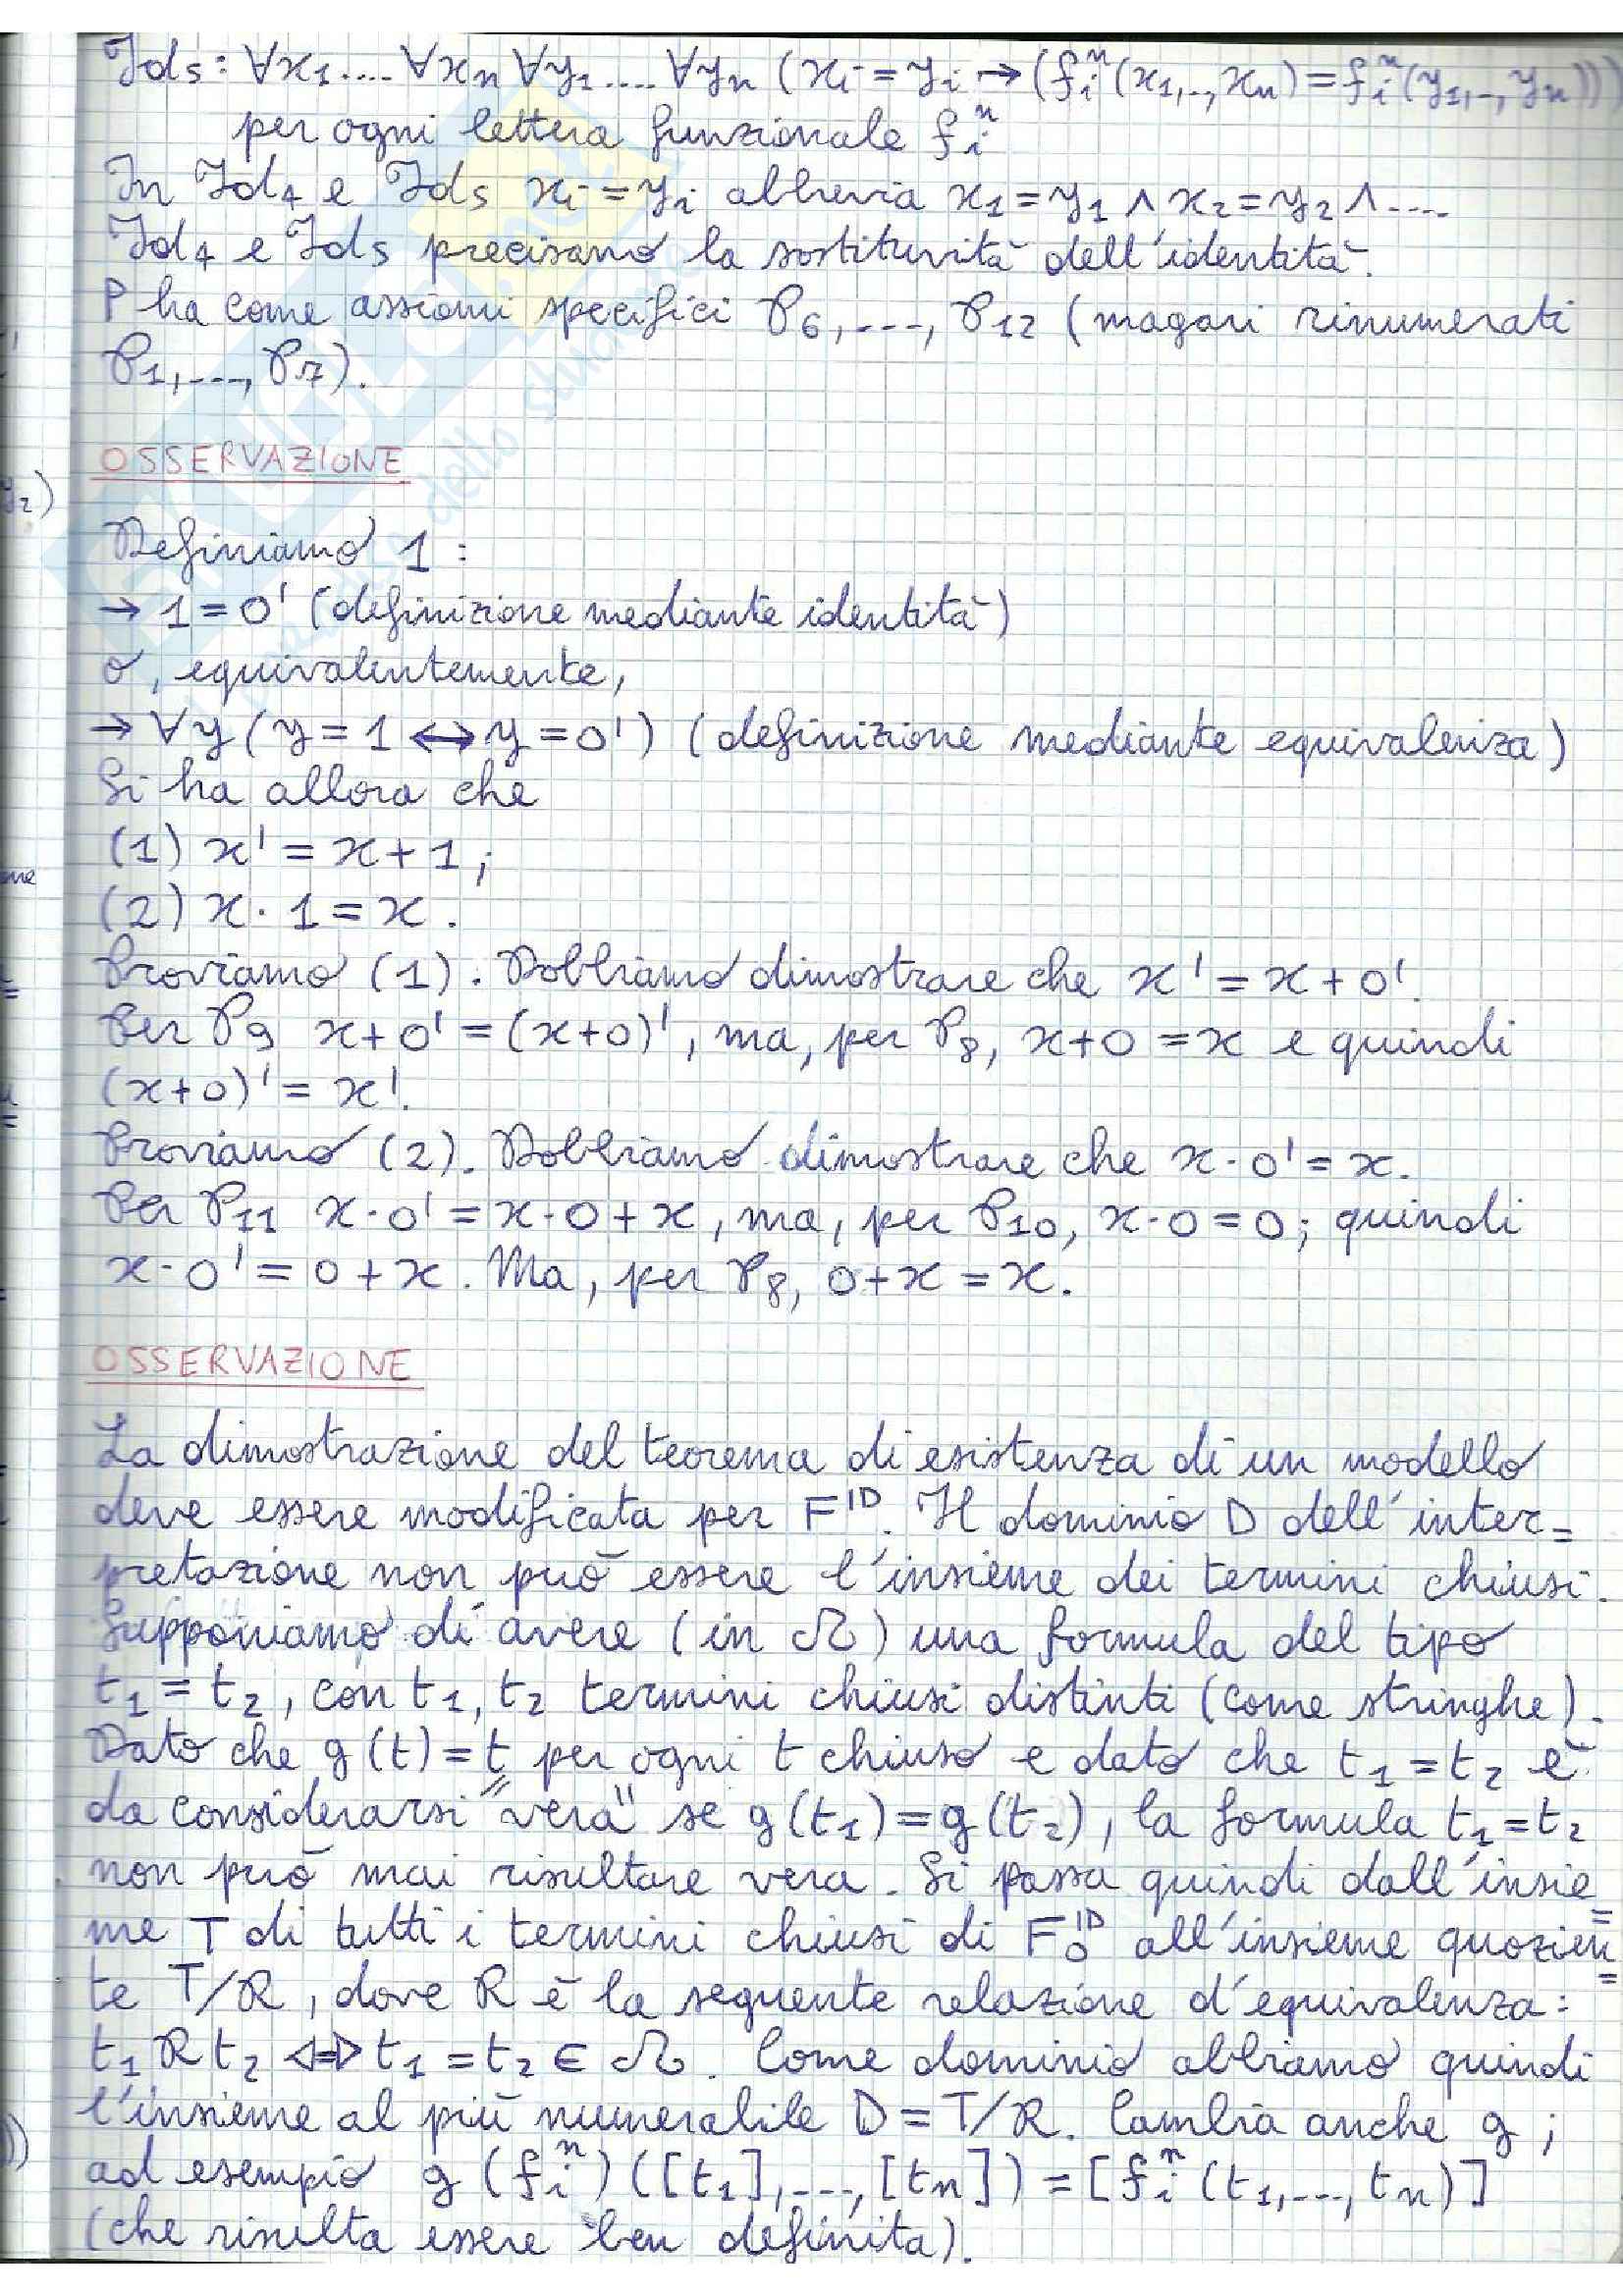 Id5: ∀x1.... ∀xn ∀y1.... ∀yn (xi = yi → (fi^n(x1,..,xn) = fi^n(y1,..,yn)))
per ogni lettera funzionale fi^n
In Id4 e Id5 xi = yi abbrevia x1 = y1 ∧ x2 = y2 ∧ ....
Id4 e Id5 precisano la sostitutività dell'identità.
P ha come assiomi specifici P6, ..., P12 (magari rinumerati
P1, ..., P7).
OSSERVAZIONE
Definiamo 1 :
→ 1 = 0' (definizione mediante identità)
o, equivalentemente,
→ ∀y (y = 1 ↔ y = 0') (definizione mediante equivalenza)
Si ha allora che
(1) x' = x + 1 ;
(2) x · 1 = x .
Proviamo (1). Dobbiamo dimostrare che x' = x + 0'.
Per P9 x + 0' = (x+0)', ma, per P8, x+0 = x e quindi
(x+0)' = x'.
Proviamo (2). Dobbiamo dimostrare che x · 0' = x.
Per P11 x · 0' = x · 0 + x, ma, per P10, x · 0 = 0; quindi
x · 0' = 0 + x. Ma, per P8, 0 + x = x.
OSSERVAZIONE
La dimostrazione del teorema di esistenza di un modello
deve essere modificata per F^ID. Il dominio D dell'inter=
pretazione non può essere l'insieme dei termini chiusi.
Supponiamo di avere (in Ω) una formula del tipo
t1 = t2, con t1, t2 termini chiusi distinti (come stringhe).
Dato che g(t) = t per ogni t chiuso e dato che t1 = t2 è
da considerarsi "vera" se g(t1) = g(t2), la formula t1 = t2
non può mai risultare vera. Si passa quindi dall'insie=
me T di tutti i termini chiusi di F0^ID all'insieme quozien=
te T/R, dove R è la seguente relazione d'equivalenza:
t1 R t2 ⟺ t1 = t2 ∈ Ω. Come dominio abbiamo quindi
l'insieme al più numerabile D = T/R. Cambia anche g ;
ad esempio g (fi^n) ([t1], ..., [tn]) = [fi^n (t1, ..., tn)]
(che risulta essere ben definita).